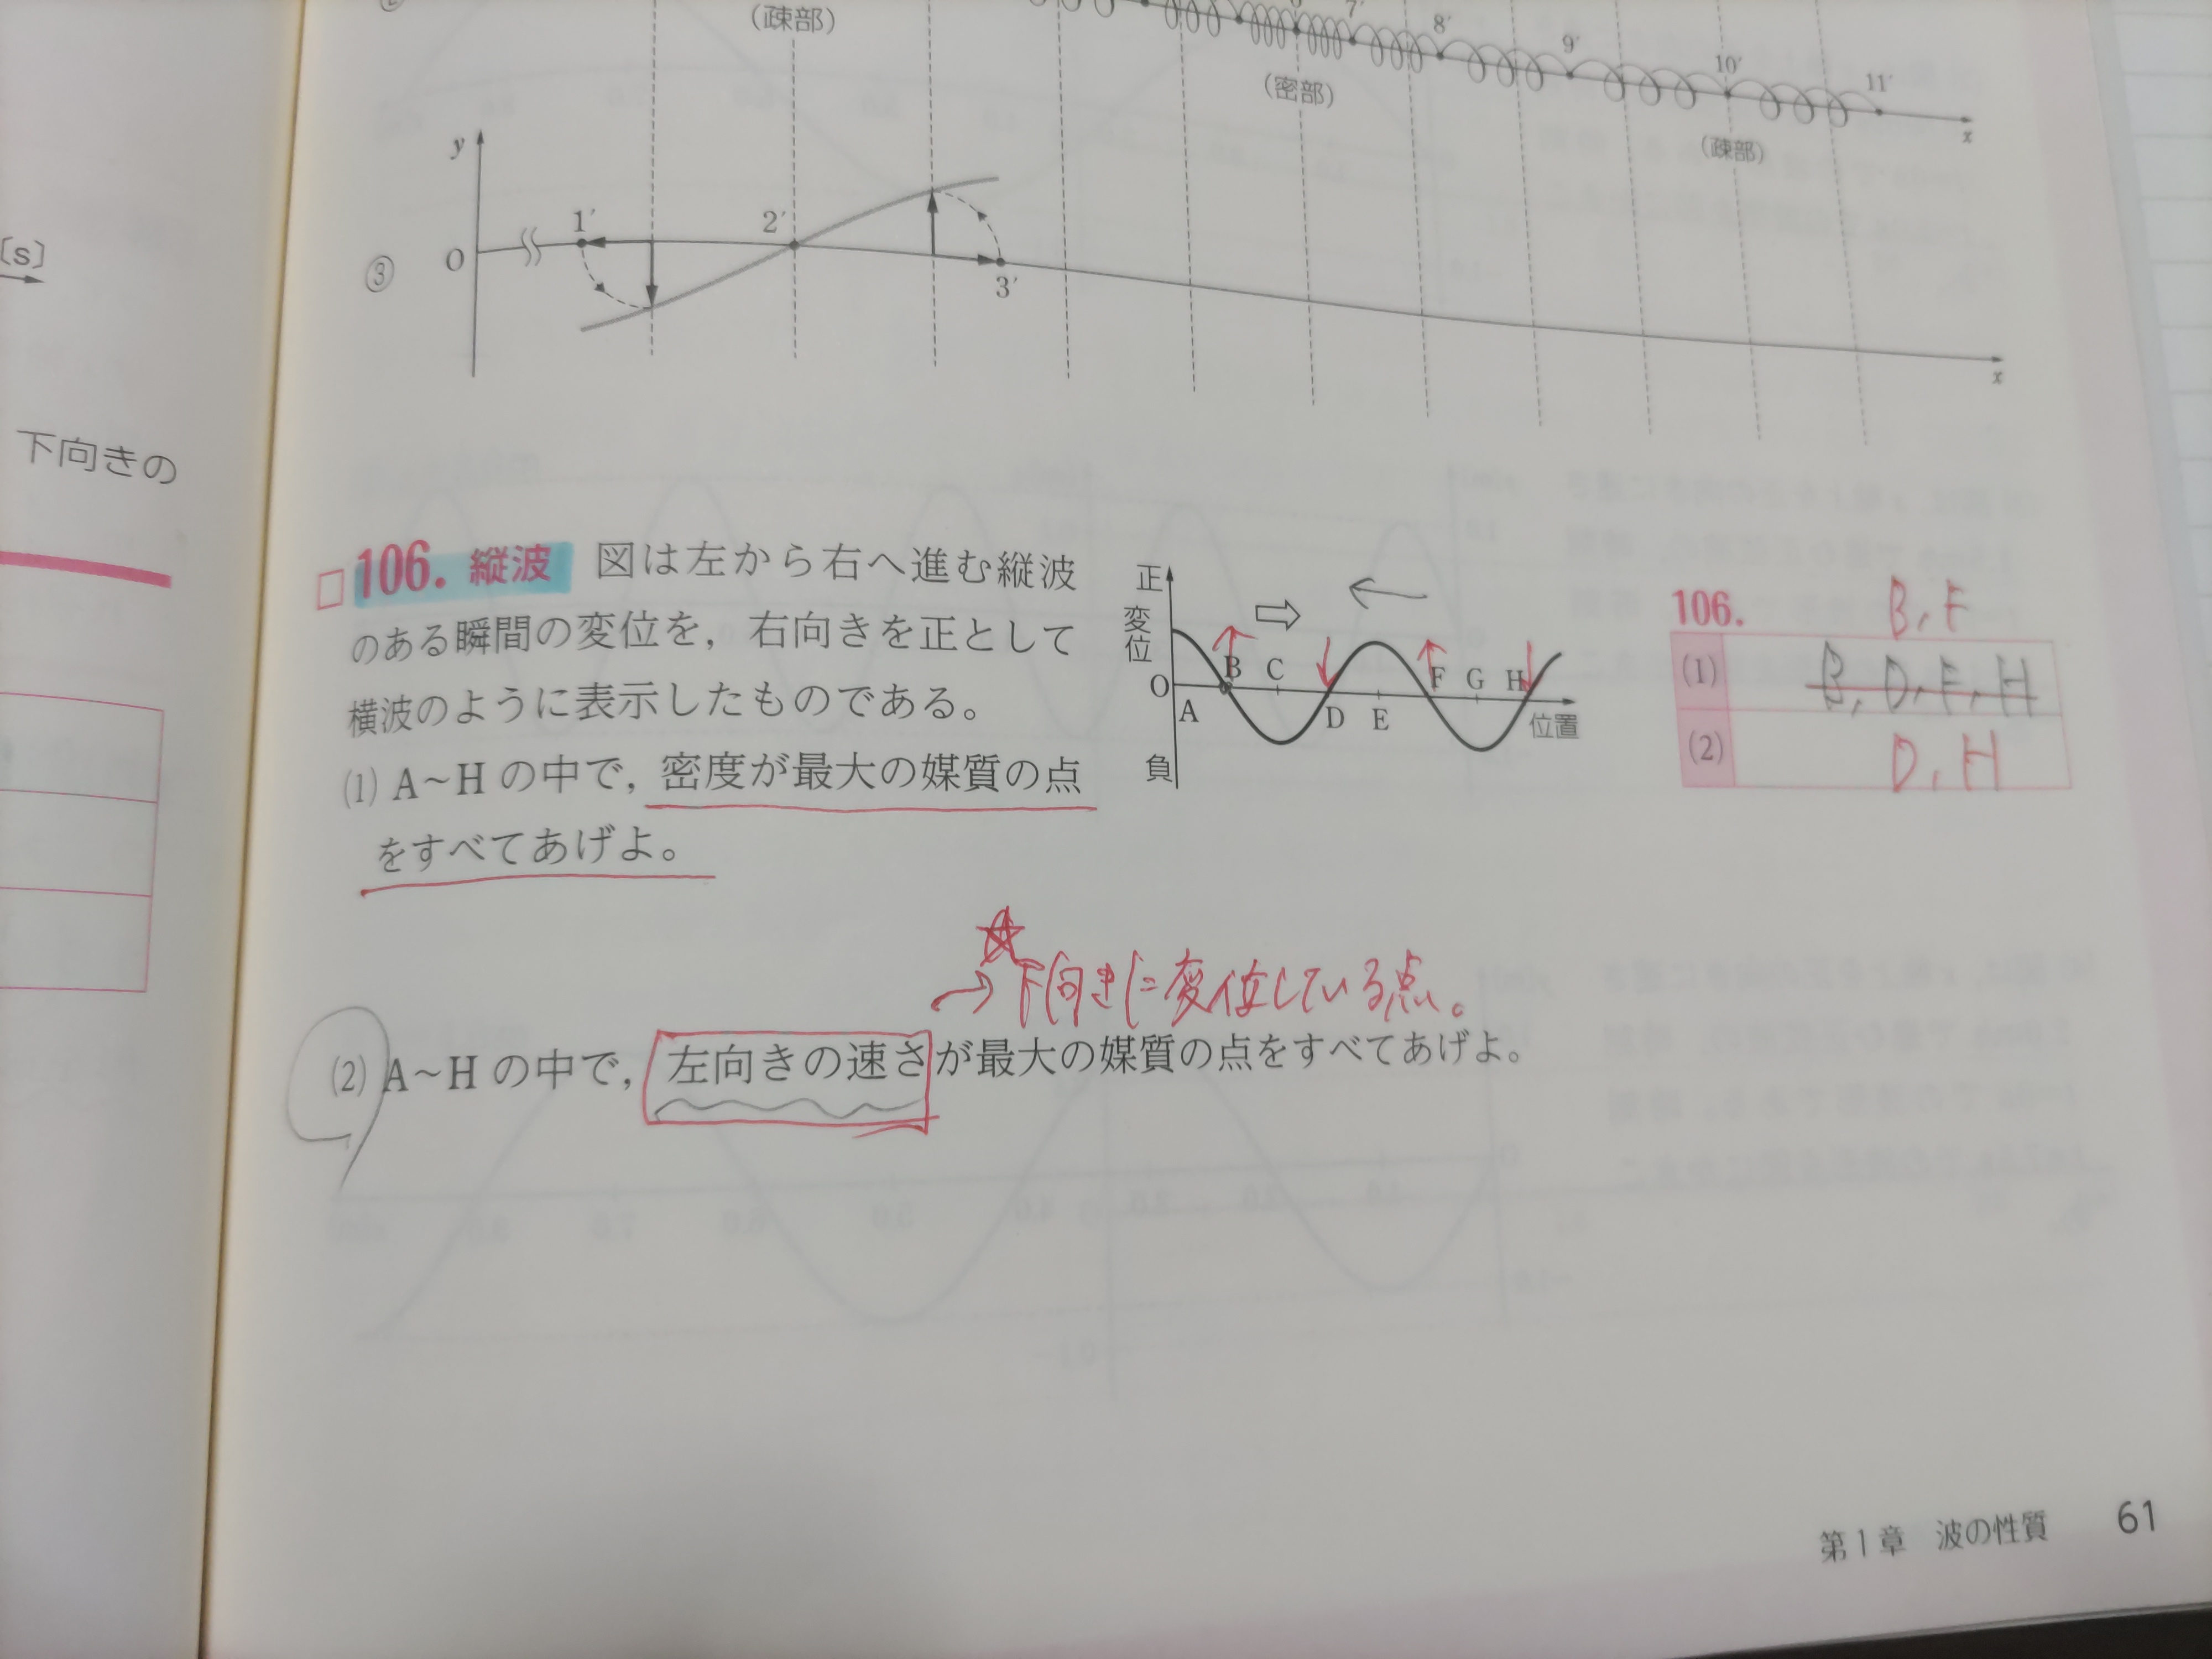 (疎部)
7′
8′
9′
10′
11′
(密部)
(疎部)
x
y
③
O
1′
2′
3′
x
〔s〕
下向きの
106. 縦波 図は左から右へ進む縦波
のある瞬間の変位を，右向きを正として
横波のように表示したものである。
(1) A～H の中で，密度が最大の媒質の点
をすべてあげよ。
正
変位
O
負
A
B
C
D
E
F
G
H
位置
106.
B, F
(1) B, D, F, H
(2) D, H
→下向きに変位している点。
(2) A～H の中で，左向きの速さが最大の媒質の点をすべてあげよ。
第1章 波の性質 61